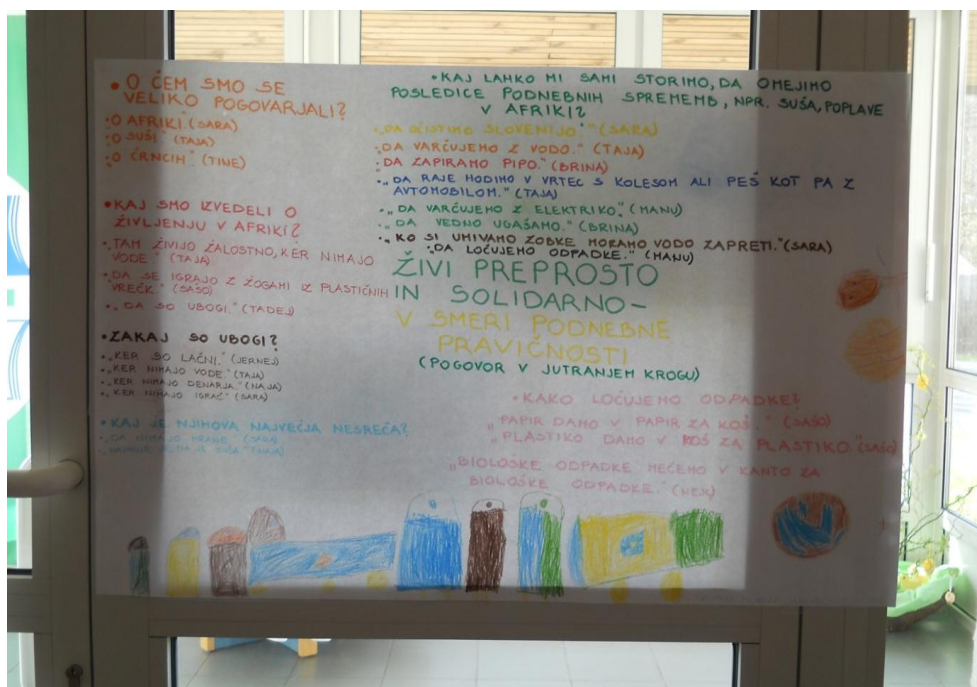 • O ČEM SMO SE
VELIKO POGOVARJALI?
„O AFRIKI.“ (SARA)
„O SUŠI.“ (TAJA)
„O ČRNCIH.“ (TINE)
• KAJ SMO IZVEDELI O
ŽIVLJENJU V AFRIKI?
• „TAM ŽIVIJO ŽALOSTNO, KER NIMAJO
VODE.“ (TAJA)
• „DA SE IGRAJO Z ŽOGAMI IZ PLASTIČNIH
VREČK.“ (SAŠO)
• „DA SO UBOGI.“ (TADEJ)
• ZAKAJ SO UBOGI?
• „KER SO LAČNI.“ (JERNEJ)
• „KER NIMAJO VODE.“ (TAJA)
• „KER NIMAJO DENARJA.“ (NAJA)
• „KER NIMAJO IGRAČ.“ (SARA)
• KAJ JE NJIHOVA NAJVEČJA NESREČA?
• „DA NIMAJO HRANE.“ (SARA)
• KAJ LAHKO MI SAMI STORIMO, DA OMEJIMO
POSLEDICE PODNEBNIH SPREMEMB, NPR. SUŠA, POPLAVE
V AFRIKI?
• „DA OČISTIMO SLOVENIJO.“ (SARA)
• „DA VARČUJEMO Z VODO.“ (TAJA)
• „DA ZAPIRAMO PIPO.“ (BRINA)
• „DA RAJE HODIMO V VRTEC S KOLESOM ALI PEŠ KOT PA Z
AVTOMOBILOM.“ (TAJA)
• „DA VARČUJEMO Z ELEKTRIKO.“ (MANU)
• „DA VEDNO UGAŠAMO.“ (BRINA)
• „KO SI UMIVAMO ZOBKE MORAMO VODO ZAPRETI.“ (SARA)
• „DA LOČUJEMO ODPADKE.“ (MANU)
ŽIVI PREPROSTO
IN SOLIDARNO –
V SMERI PODNEBNE
PRAVIČNOSTI
(POGOVOR V JUTRANJEM KROGU)
• KAKO LOČUJEMO ODPADKE?
„PAPIR DAMO V PAPIR ZA KOŠ.“ (SAŠO)
„PLASTIKO DAMO V KOŠ ZA PLASTIKO.“ (SAŠO)
„BIOLOŠKE ODPADKE MEČEMO V KANTO ZA
BIOLOŠKE ODPADKE.“ (NEJC)